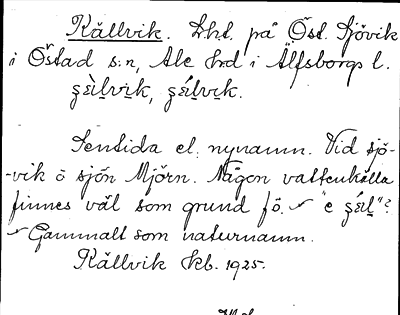 Källvik. Lht. på Öst. Sjövik
i Östad s:n, Ale hrd i Älfsborgs l.
Sentida el. nynamn. Vid sjö-
-vik ö sjön Mjörn. Någon vattenkälla
finnes väl som grund fö.
Gammalt som naturnamn.
Källvik Ekb. 1925.